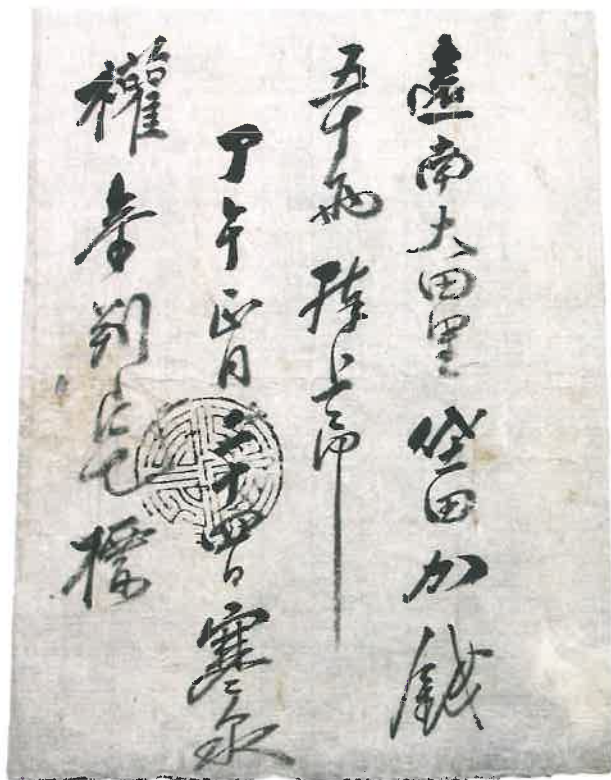 遠南大田里垈田加錢
五十兩捧上印
丁午正月二十四日寒泉
權參判宅標